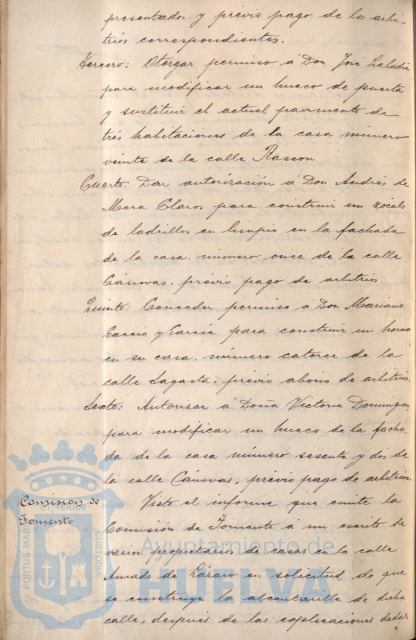 presentados y previo pago de los arbi-
trios correspondientes.
Tercero: Otorgar permiso á Don José
para modificar un hueco de puerta
y sustituir el actual pavimento de
tres habitaciones de la casa número
veinte de la calle Rascon
Cuarto. Dar autorización á Don Andrés de
Mora Claros para construir un zócalo
de ladrillos en limpio en la fachada
de la casa número once de la calle
Cánovas, previo pago de arbitrios
Quinto. Conceder permiso á Don Mariano
García y García para construir un horno
en su casa número catorce de la
calle Sagasta, previo abono de arbitrios.
Sexto: Autorizar á Doña Victoria Dominguez
para modificar un hueco de la facha
da de la casa número sesenta y dos de
la calle Cánovas, previo pago de arbitrios.
Comision de
Fomento
Visto el informe que emite la
Comisión de Fomento á un escrito de
varios propietarios de casas de la calle
Amado de Lázaro en solicitud de que
se construya la alcantarilla de dicha
calle, después de las explicaciones dadas
Ayuntamiento de
HUELVA
PORTUS MARIS ET TERRAE CUSTODIA